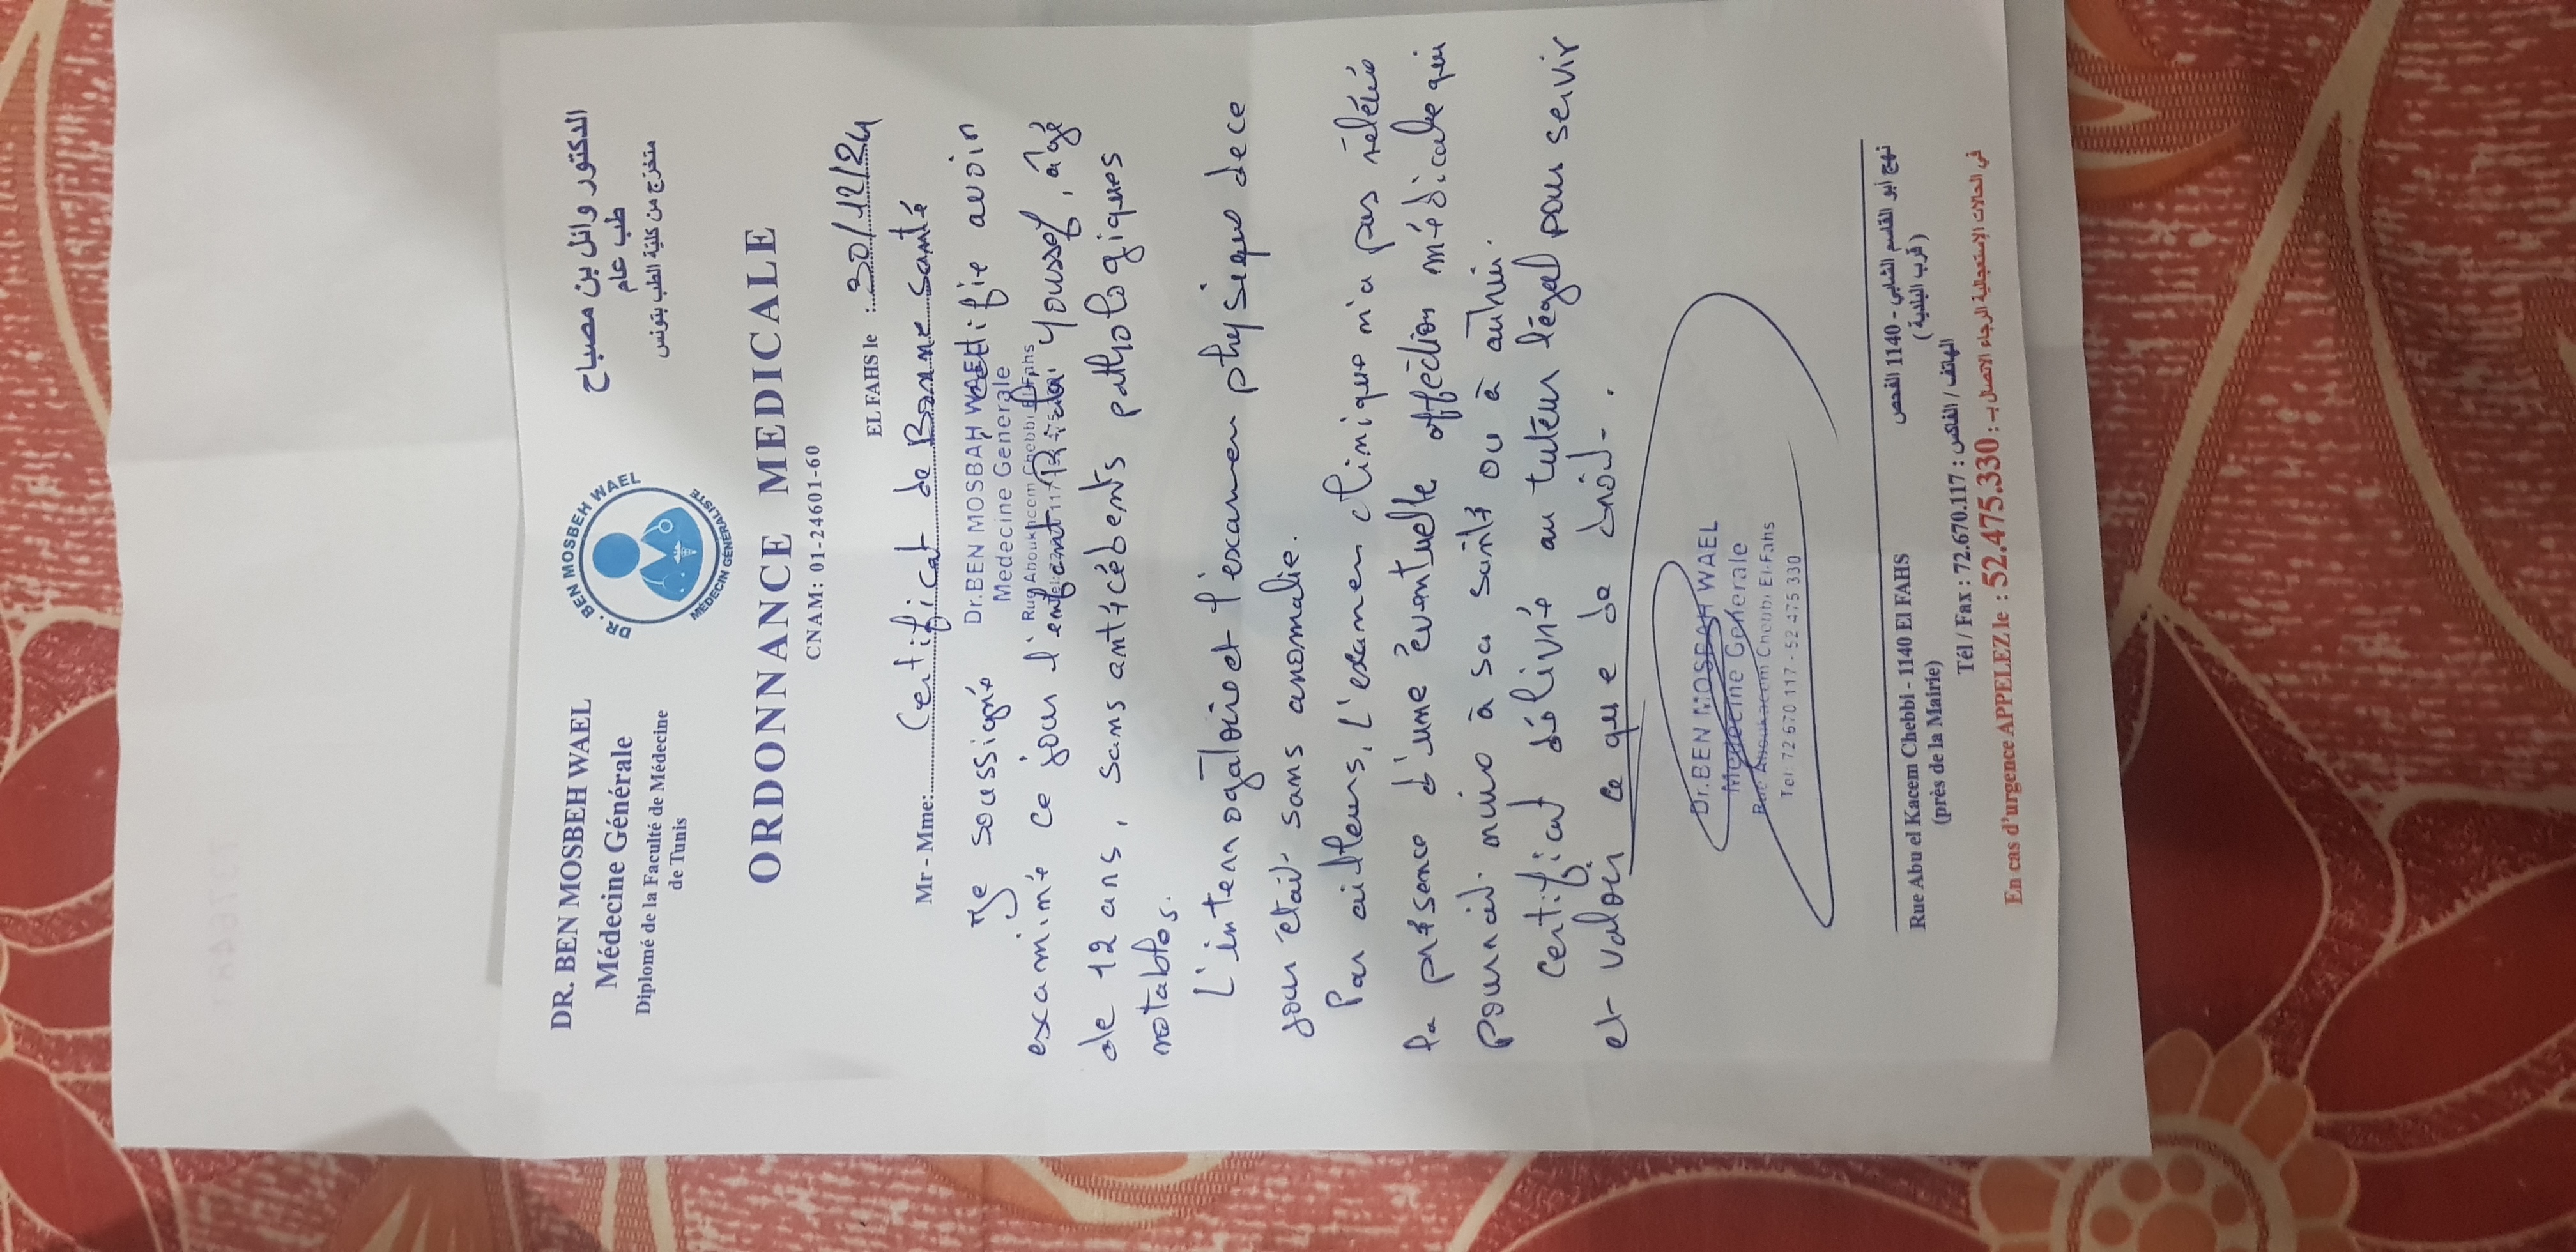 DR. BEN MOSBEH WAEL
Médecine Générale
Diplomé de la Faculté de Médecine
de Tunis
DR. BEN MOSBEH WAEL
MÉDECIN GÉNÉRALISTE
الدكتور وائل بن مصباح
طب عام
متخرج من كلية الطب بتونس
ORDONNANCE MEDICALE
CNAM: 01-24601-60
EL FAHS le : 30/12/24
Mr - Mme: Certificat de Bonne santé
Je soussigné Dr. BEN MOSBAH WAEL certifie avoir
Medecine Generale
Rue Aboukacem Chebbi El Fahs
examiné ce jour l'enfant Youssef, âgé
de 12 ans, sans antécédents pathologiques
notables.
L'interrogatoire et l'examen physique de ce
jour etait sans anomalie.
Par ailleurs, l'examen clinique n'a pas
la présence d'une éventuelle affection médicale qui
pourrait nuire à sa santé ou à autrui.
Certificat délivré au tuteur légal pour servir
et valoir ce que de droit.
Dr. BEN MOSBAH WAEL
Medecine Generale
Rue Aboukacem Chebbi El-Fahs
Tel: 72 670 117 - 52 475 330
Rue Abu el Kacem Chebbi - 1140 El FAHS
نهج أبو القاسم الشابي - 1140 الفحص
(près de la Mairie)
( قرب البلدية )
Tél / Fax : 72.670.117 : الهاتف / الفاكس
En cas d'urgence APPELEZ le : 52.475.330 : في الحالات الإستعجالية الرجاء الاتصال بـ